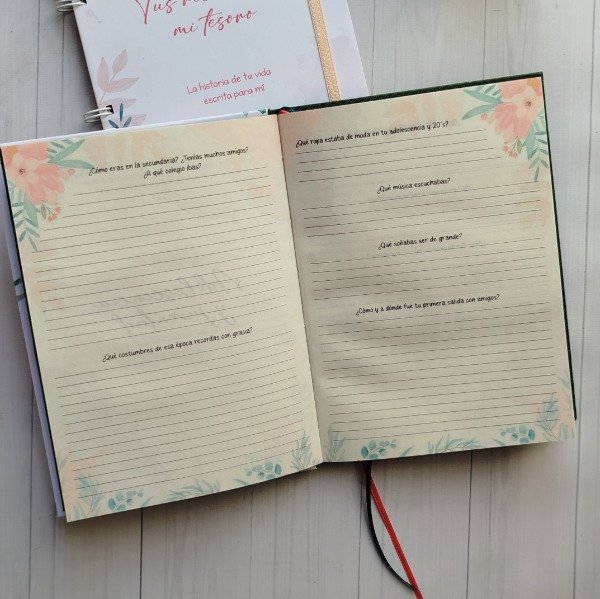 Tus
mi tesoro
La historia de tu vida
escrita para mí
¿Cómo eras en la secundaria? ¿Tenías muchos amigos?
¿A qué colegio ibas?
¿Qué costumbres de esa época recordás con gracia?
¿Qué ropa estaba de moda en tu adolescencia y 20's?
¿Qué música escuchabas?
¿Qué soñabas ser de grande?
¿Cómo y a dónde fue tu primera salida con amigos?